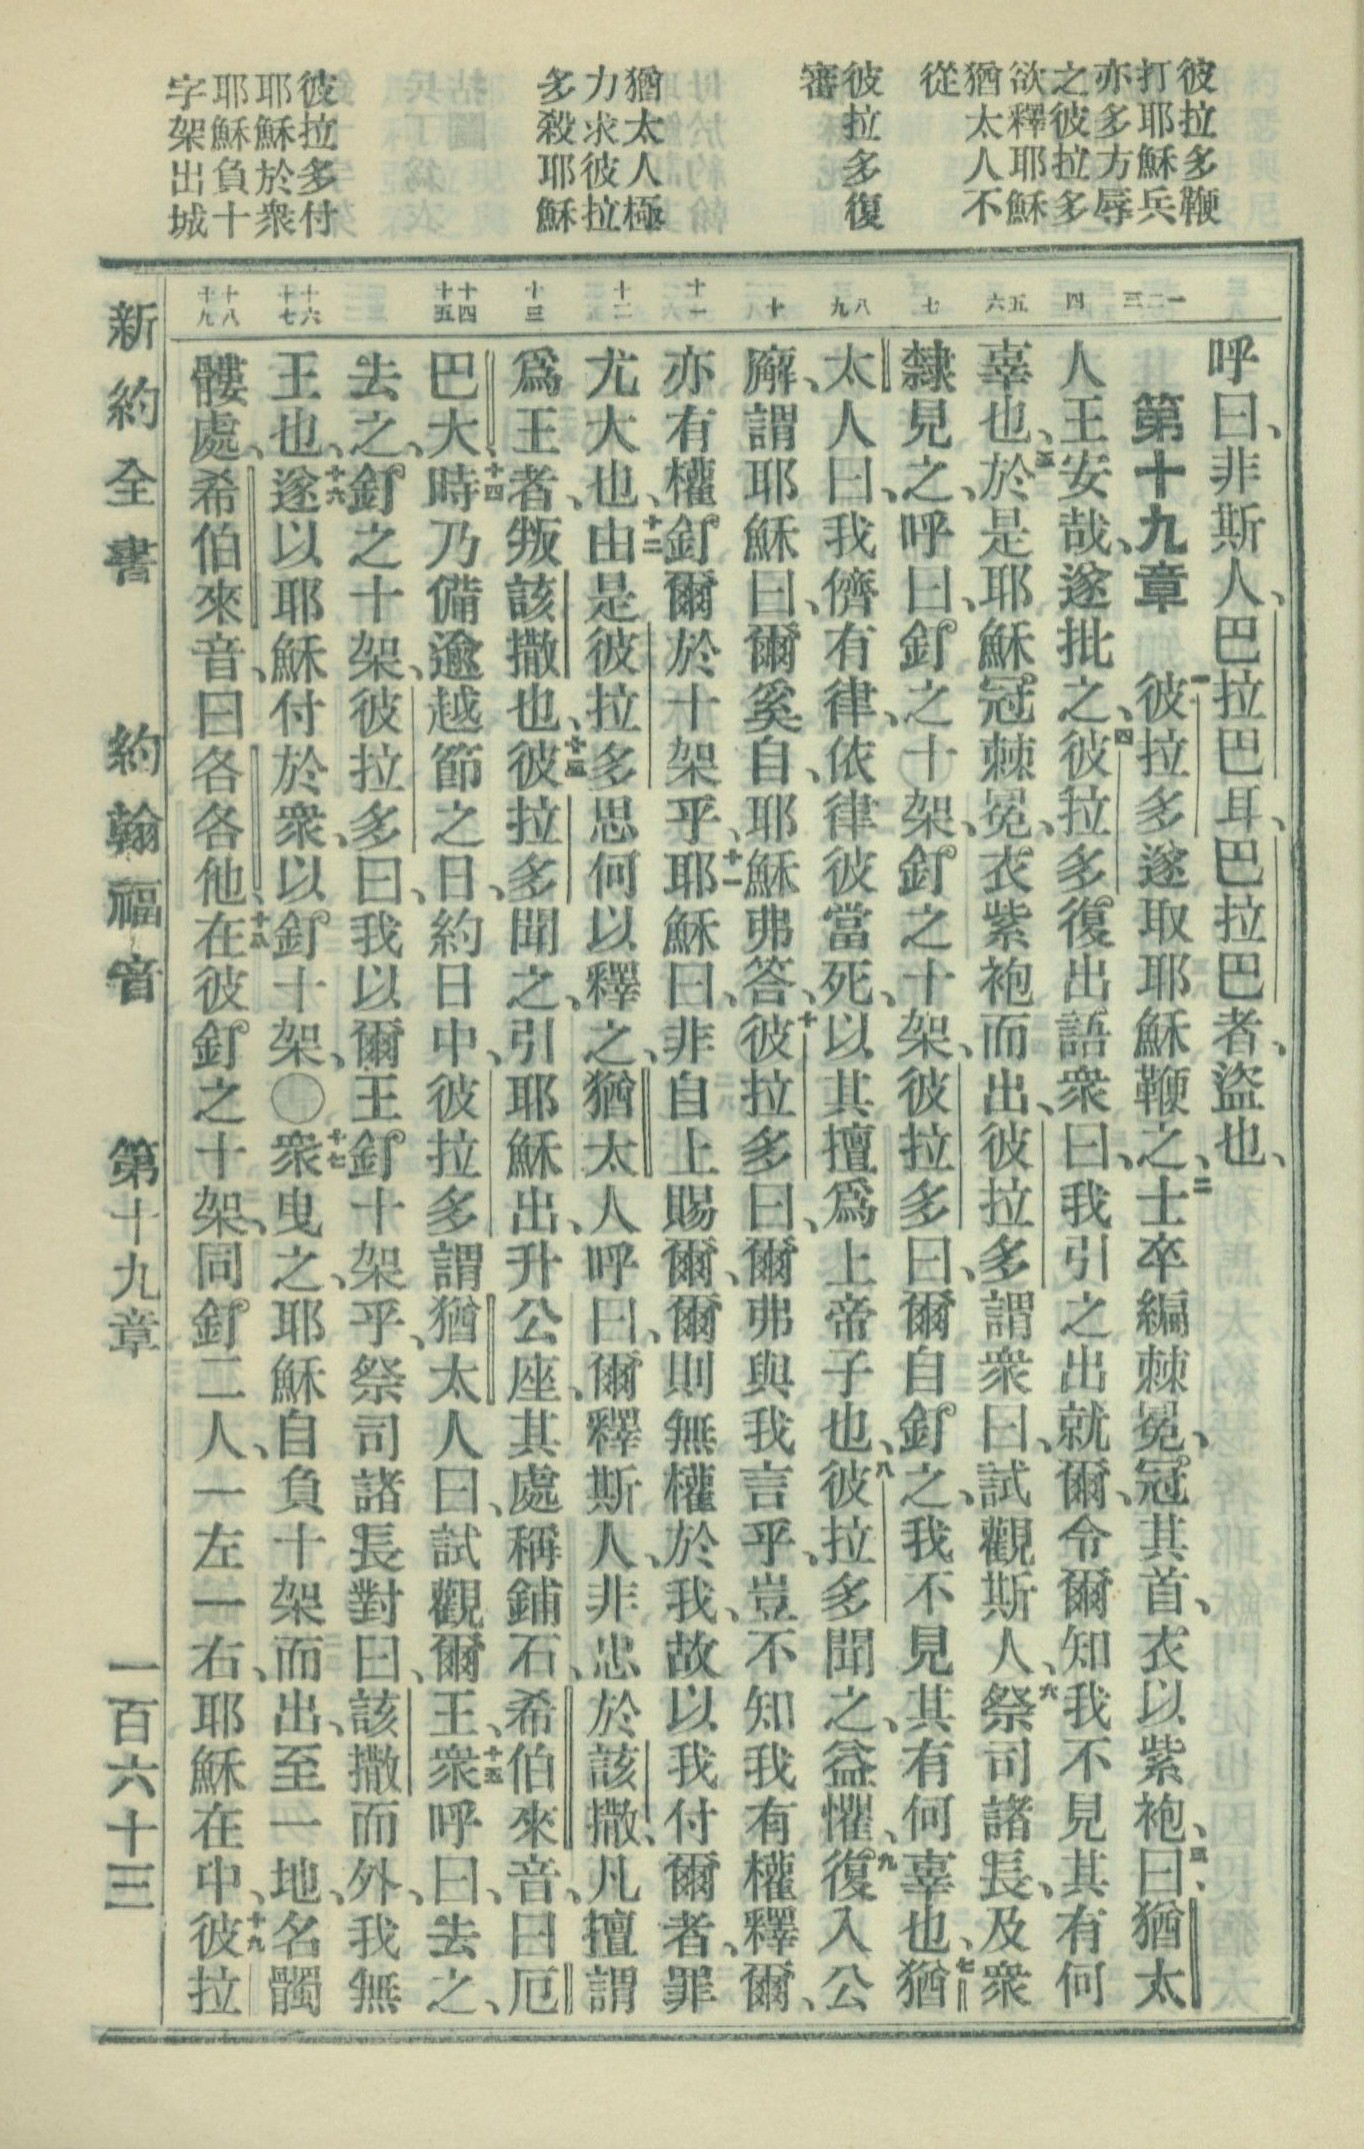 彼拉多鞭
打耶穌兵
亦多方辱
之彼拉多
欲釋耶穌
猶太人不
從
彼拉多復
審
猶太人極
力求彼拉
多殺耶穌
彼拉多付
耶穌於衆
耶穌負十
字架出城
一
二
三
四
五
六
七
八
九
十
十一
十二
十三
十四
十五
十六
十七
十八
十九
呼曰、非斯人、巴拉巴耳、巴拉巴者、盜也、
第十九章 一彼拉多遂取耶穌鞭之、二士卒編棘冕、冠其首、衣以紫袍、三曰、猶太
人王安哉、遂批之、四彼拉多復出語衆曰、我引之出就爾、令爾知我不見其有何
辜也、五於是耶穌冠棘冕、衣紫袍而出、彼拉多謂衆曰、試觀斯人、六祭司諸長、及衆
隸見之、呼曰、釘之十架、釘之十架、彼拉多曰、爾自釘之、我不見其有何辜也、七猶
太人曰、我儕有律、依律彼當死、以其擅爲上帝子也、八彼拉多聞之、益懼、九復入公
廨、謂耶穌曰、爾奚自、耶穌弗答、十彼拉多曰、爾弗與我言乎、豈不知我有權釋爾、
亦有權釘爾於十架乎、十一耶穌曰、非自上賜爾、爾則無權於我、故以我付爾者、罪
尤大也、十二由是彼拉多思何以釋之、猶太人呼曰、爾釋斯人、非忠於該撒、凡擅謂
爲王者、叛該撒也、十三彼拉多聞之、引耶穌出、升公座、其處稱鋪石、希伯來音、曰厄
巴大、十四時乃備逾越節之日、約日中、彼拉多謂猶太人曰、試觀爾王、十五衆呼曰、去之、
去之、釘之十架、彼拉多曰、我以爾王釘十架乎、祭司諸長對曰、該撒而外、我無
王也、十六遂以耶穌付於衆、以釘十架、○十七衆曳之、耶穌自負十架而出、至一地、名髑
髏處、希伯來音、曰各各他、十八在彼釘之十架、同釘二人、一左一右、耶穌在中、十九彼拉
新約全書 約翰福音 第十九章 一百六十三